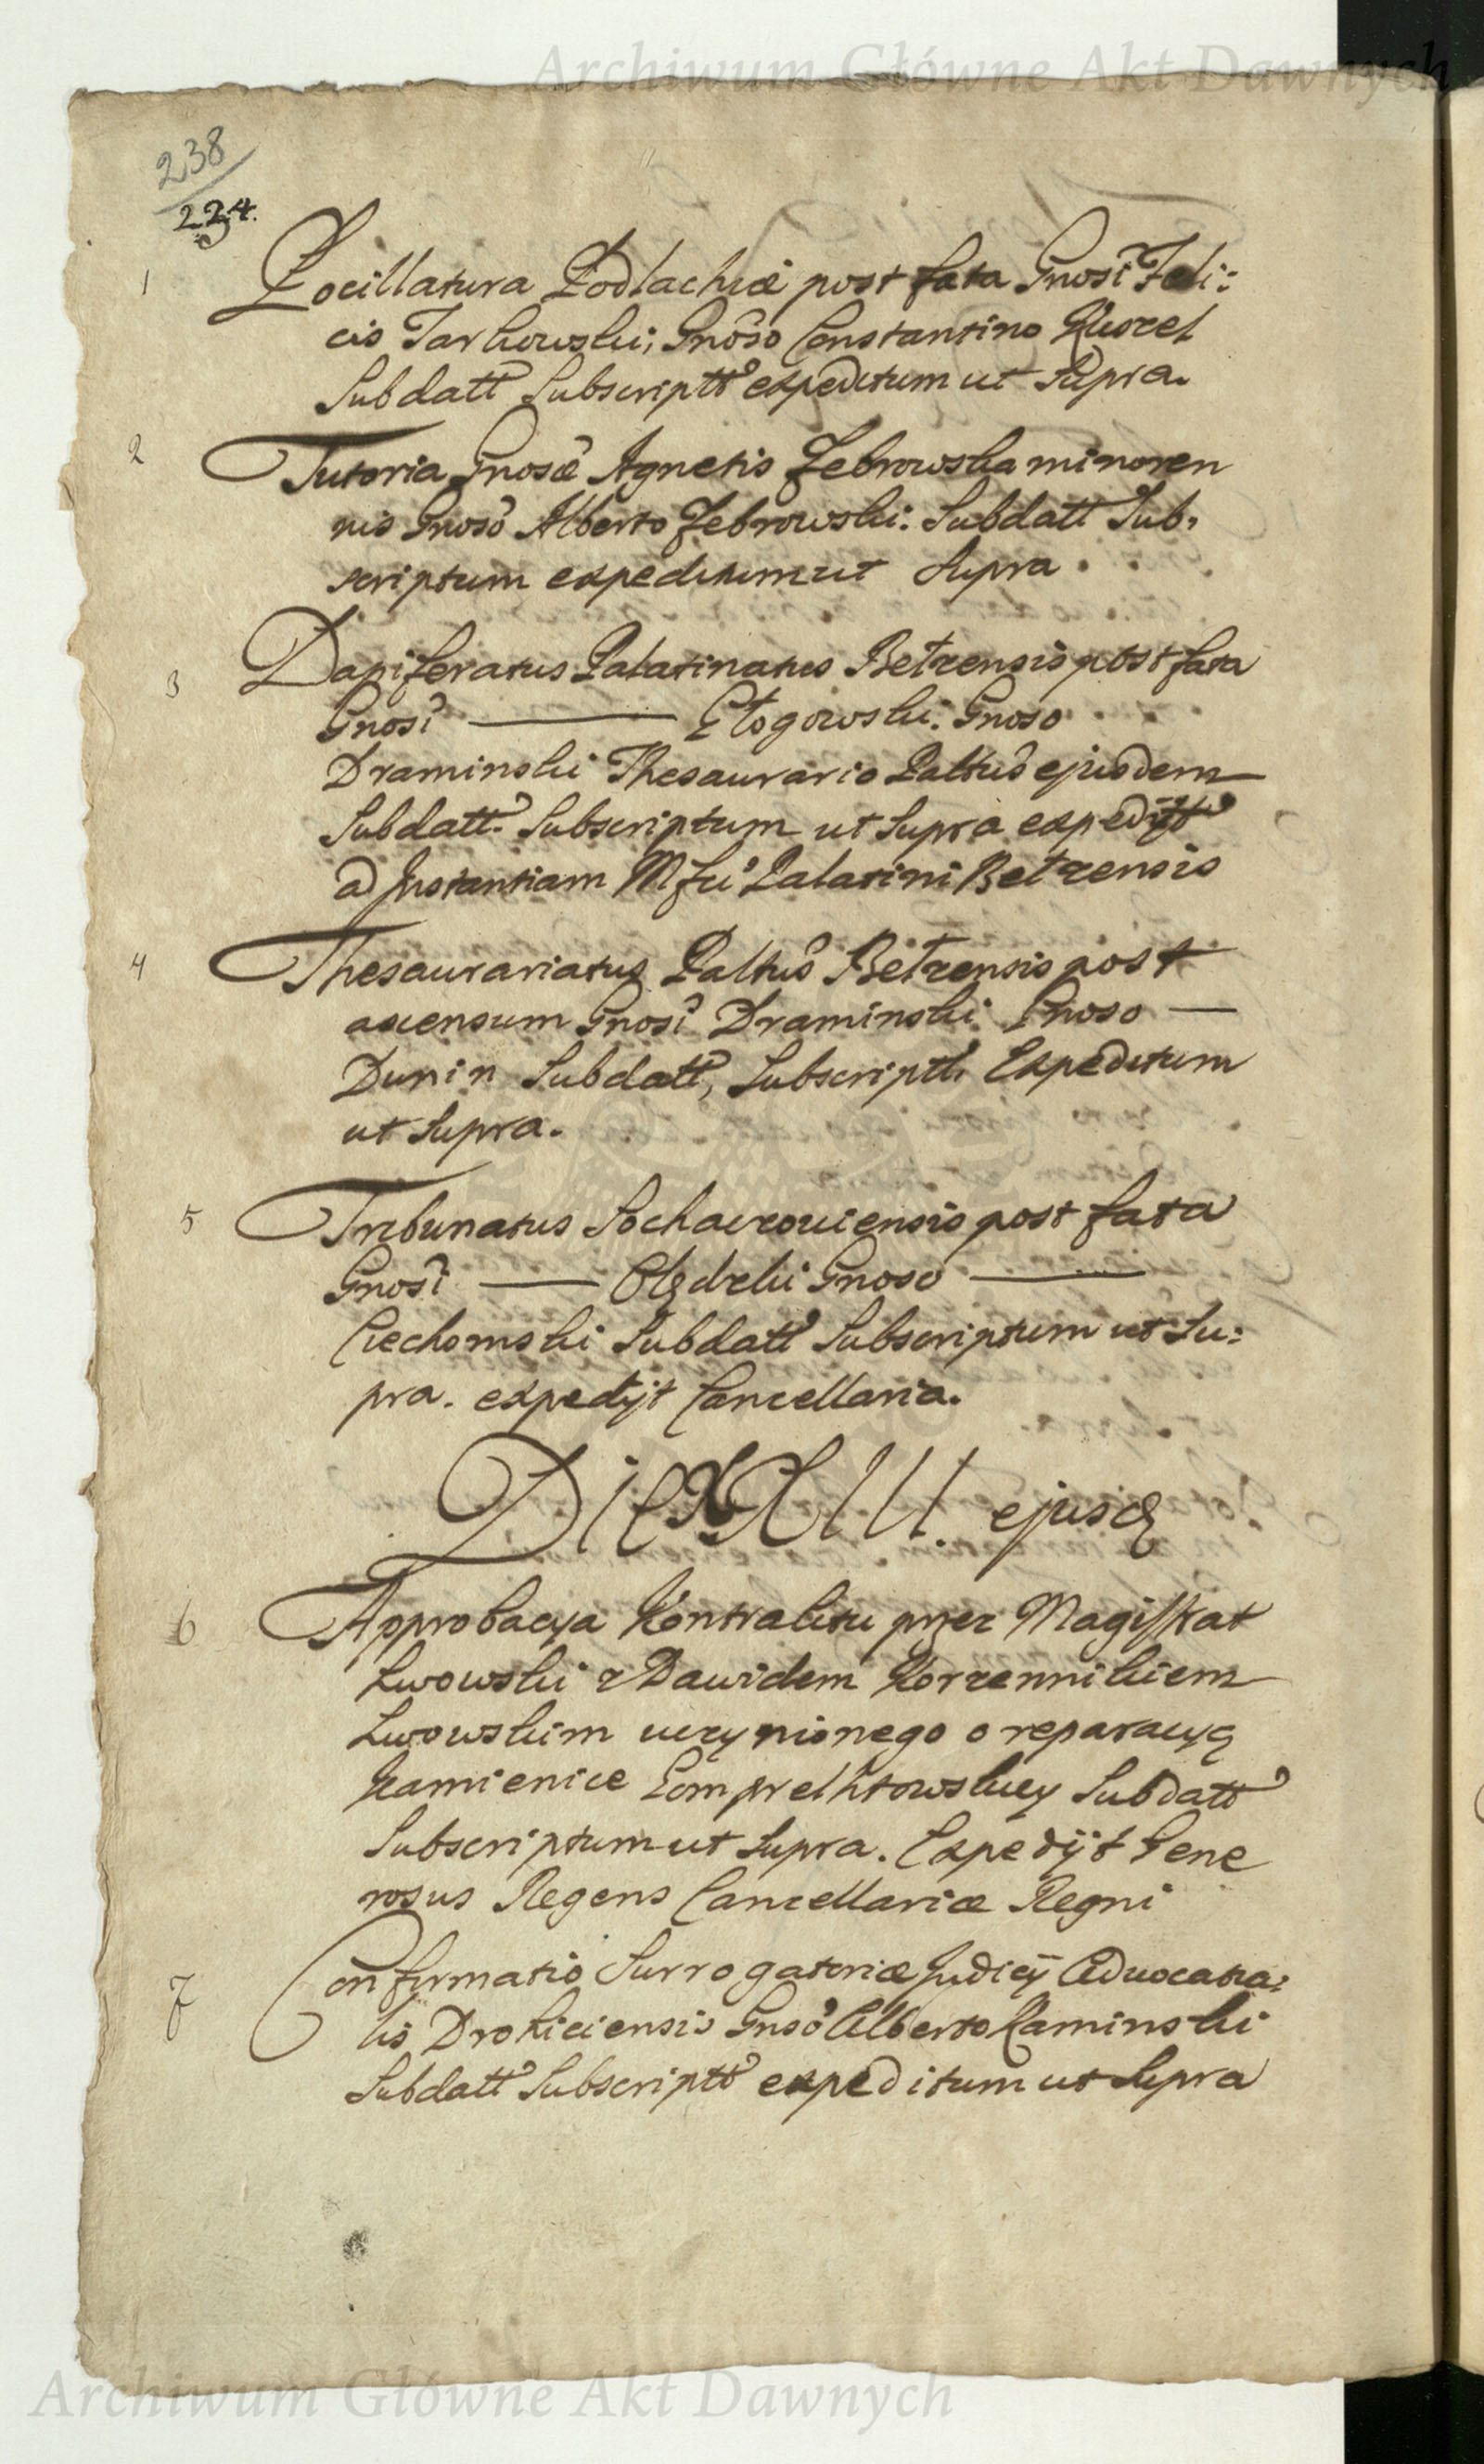 Archiwum Główne Akt Dawnych
238
224.
1
Pocillatura Podlachiæ post fata Gnosi Feli:
cis Tarkowski; Gnoso Constantino Kuszel
Subdatt Subscriptt expeditum ut Supra.
2
Tutoria Gnosæ Agnetis Zebrowska minoren
nis Gnoso Alberto Zebrowski: Subdatt Sub,
scriptum expeditum ut Supra.
3
Dapiferatus Palatinatus Bełzensis post fata
Gnosi — Głogowski. Gnoso
Draminski Thesaurario Palttus ejusdem
Subdatt. Subscriptum ut Supra expedijt
ad Instantiam Mfci Palatini Bełzensis
4
Thesaurariatus Palttus Bełzensis post
ascensum Gnosi Draminski Gnoso —
Dunin Subdatt, Subscriptt, Expeditum
ut Supra.
5
Tribunatus Sochaczoviensis post fata
Gnosi — Olędzki Gnoso —
Ciechomski Subdatt Subscriptum ut Su:
pra. expedijt Cancellaria.
Die XXIII. ejusd
6
Approbacya Kontraktu przez Magistrat
Lwowski z Dawidem Korzennikiem
Lwowskim uczynionego o reparacyą
Kamienice Gomprechtowskiey Subdatt
Subscriptum ut Supra. Expedijt Gene
rosus Regens Cancellariæ Regni
7
Confirmatio Surrogatoriæ Judicij Advocatia:
lis Drohiciensis Gnso Alberto Kaminski
Subdatt Subscriptt expeditum ut Supra
Archiwum Główne Akt Dawnych